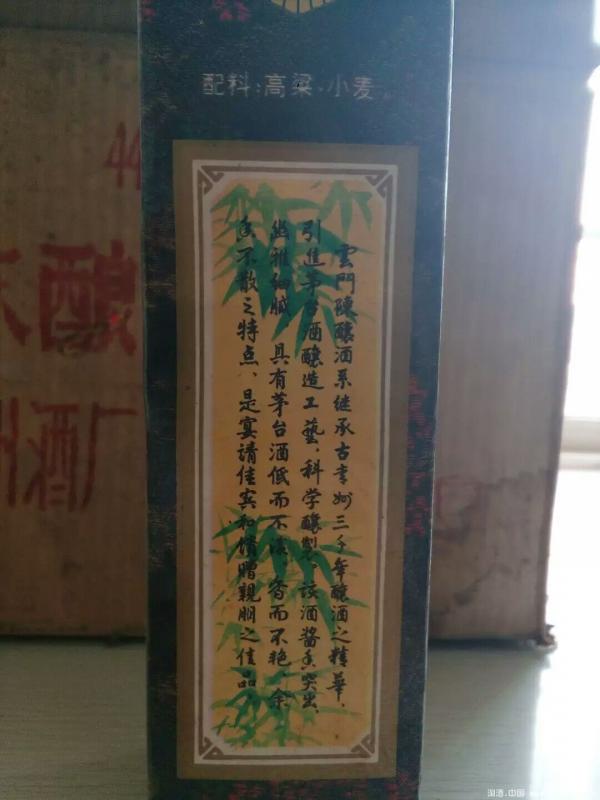 配料:高粱·小麦
雲門陳釀酒系继承古青州三千年釀酒之精華、
引進茅台酒釀造工藝、科学釀製。该酒醬香突出、
幽雅细腻、具有茅台酒低而不淡、香而不艳、余
香不散之特点、是宴請佳宾和馈赠親朋之佳品。
釀
酒厂
淘酒.中国